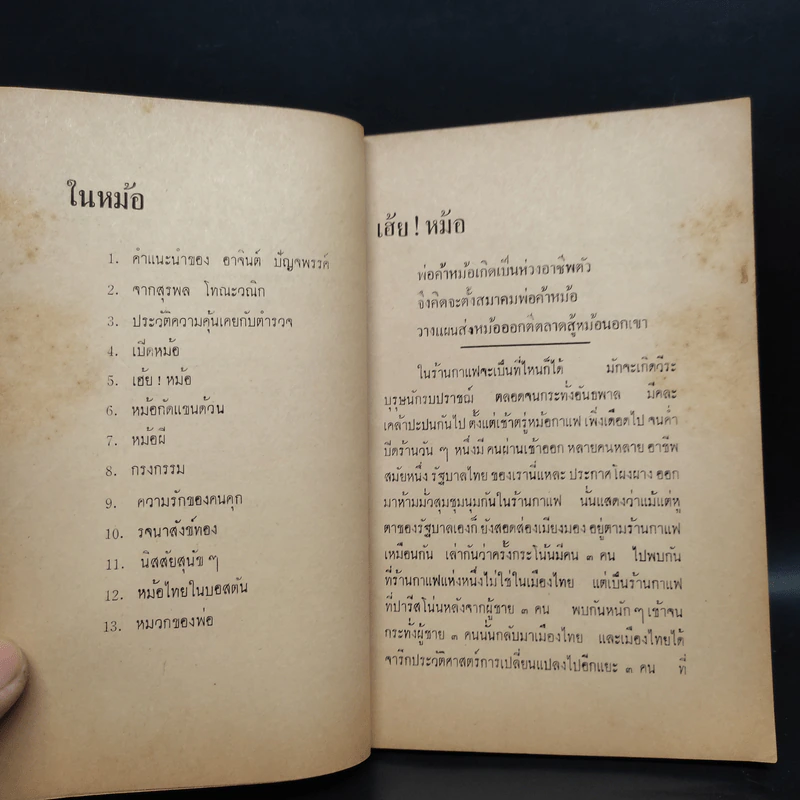 ในหม้อ
1. คำแนะนำของ อาจินต์ ปัญจพรรค์
2. จากสุรพล โทณะวณิก
3. ประวัติความคุ้นเคยกับตำรวจ
4. เปิดหม้อ
5. เฮ้ย ! หม้อ
6. หม้อกัดแขนด้วน
7. หม้อผี
8. กรงกรรม
9. ความรักของคนคุก
10. รจนาสังข์ทอง
11. นิสสัยสุนัข ๆ
12. หม้อไทยในบอสตัน
13. หมวกของพ่อ
เฮ้ย ! หม้อ
พ่อค้าหม้อเกิดเป็นห่วงอาชีพตัว
จึงคิดจะตั้งสมาคมพ่อค้าหม้อ
วางแผนส่งหม้อออกตีตลาดสู้หม้อนอกเขา
ในร้านกาแฟจะเป็นที่ไหนก็ได้ มักจะเกิดวีระ
บุรุษนักรบปราชญ์ ตลอดจนกระทั่งอันธพาล มีคละ
เคล้าปะปนกันไป ตั้งแต่เช้าตรู่หม้อกาแฟ เพิ่งเดือดไป จนค่ำ
ปิดร้านวัน ๆ หนึ่งมี คนผ่านเข้าออก หลายคนหลาย อาชีพ
สมัยหนึ่ง รัฐบาลไทย ของเรานี่แหละ ประกาศโผงผาง ออก
มาห้ามมั่วสุมชุมนุมกันในร้านกาแฟ นั้นแสดงว่าแม้แต่หู
ตาของรัฐบาลเองก็ ยังสอดส่องเมียงมอง อยู่ตามร้านกาแฟ
เหมือนกัน เล่ากันว่าครั้งกระโน้นมีคน ๓ คน ไปพบกัน
ที่ร้านกาแฟแห่งหนึ่งไม่ใช่ในเมืองไทย แต่เป็นร้านกาแฟ
ที่ปารีสโน่นหลังจากผู้ชาย ๓ คน พบกันหนัก ๆ เข้าจน
กระทั่งผู้ชาย ๓ คนนั้นกลับมาเมืองไทย และเมืองไทยได้
จารึกประวัติศาสตร์การเปลี่ยนแปลงไปอีกแยะ ๓ คน ที่